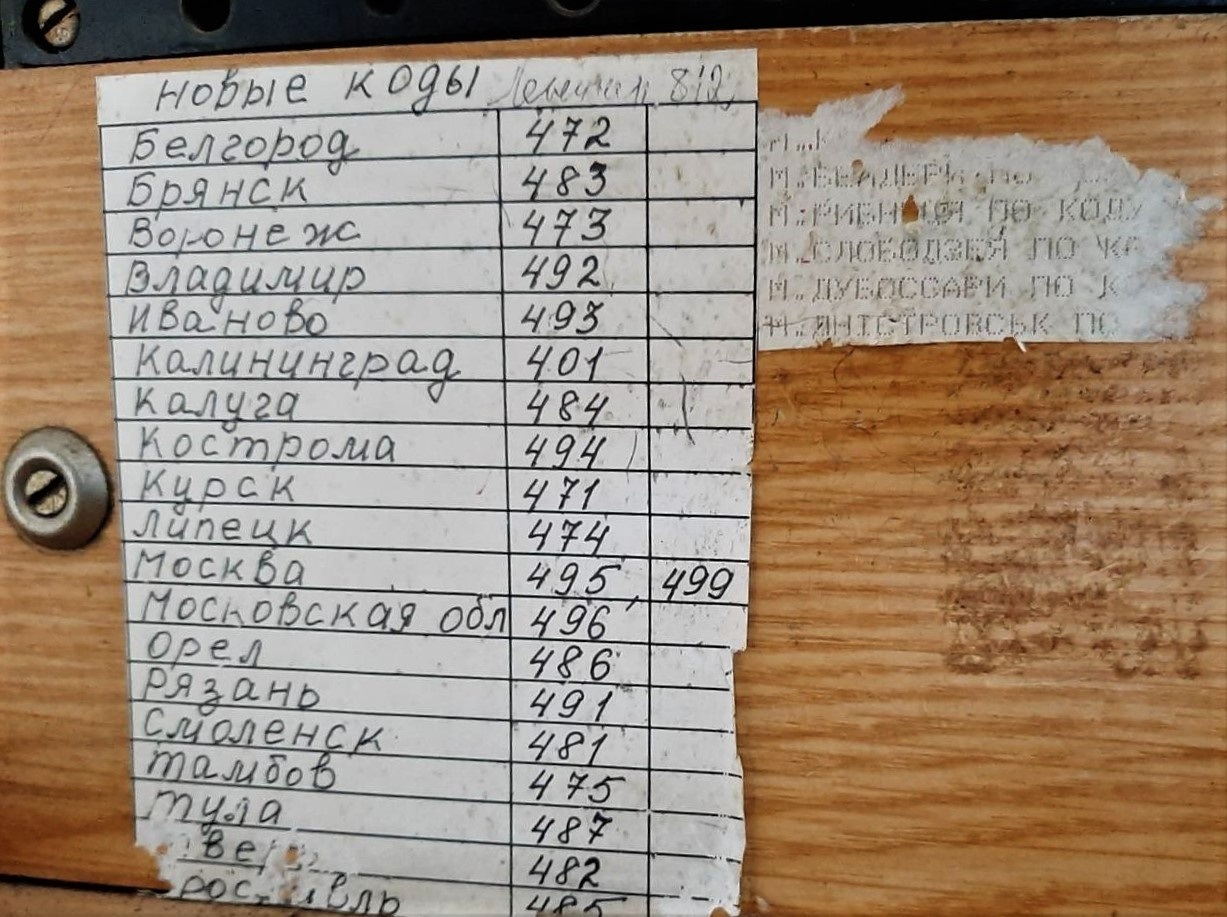 новые коды 812
Белгород 472
Брянск 483
Воронеж 473
Владимир 492
Иваново 493
Калининград 401
Калуга 484
Кострома 494
Курск 471
Липецк 474
Москва 495, 499
Московская обл 496
Орел 486
Рязань 491
Смоленск 481
Тамбов 475
Тула 487
482
485
М.РИБНИЦЯ ПО КОДУ
М.СЛОБОДЗЕЯ ПО
М.ДУБОССАРИ ПО К
М.ДНІСТРОВСЬК ПО